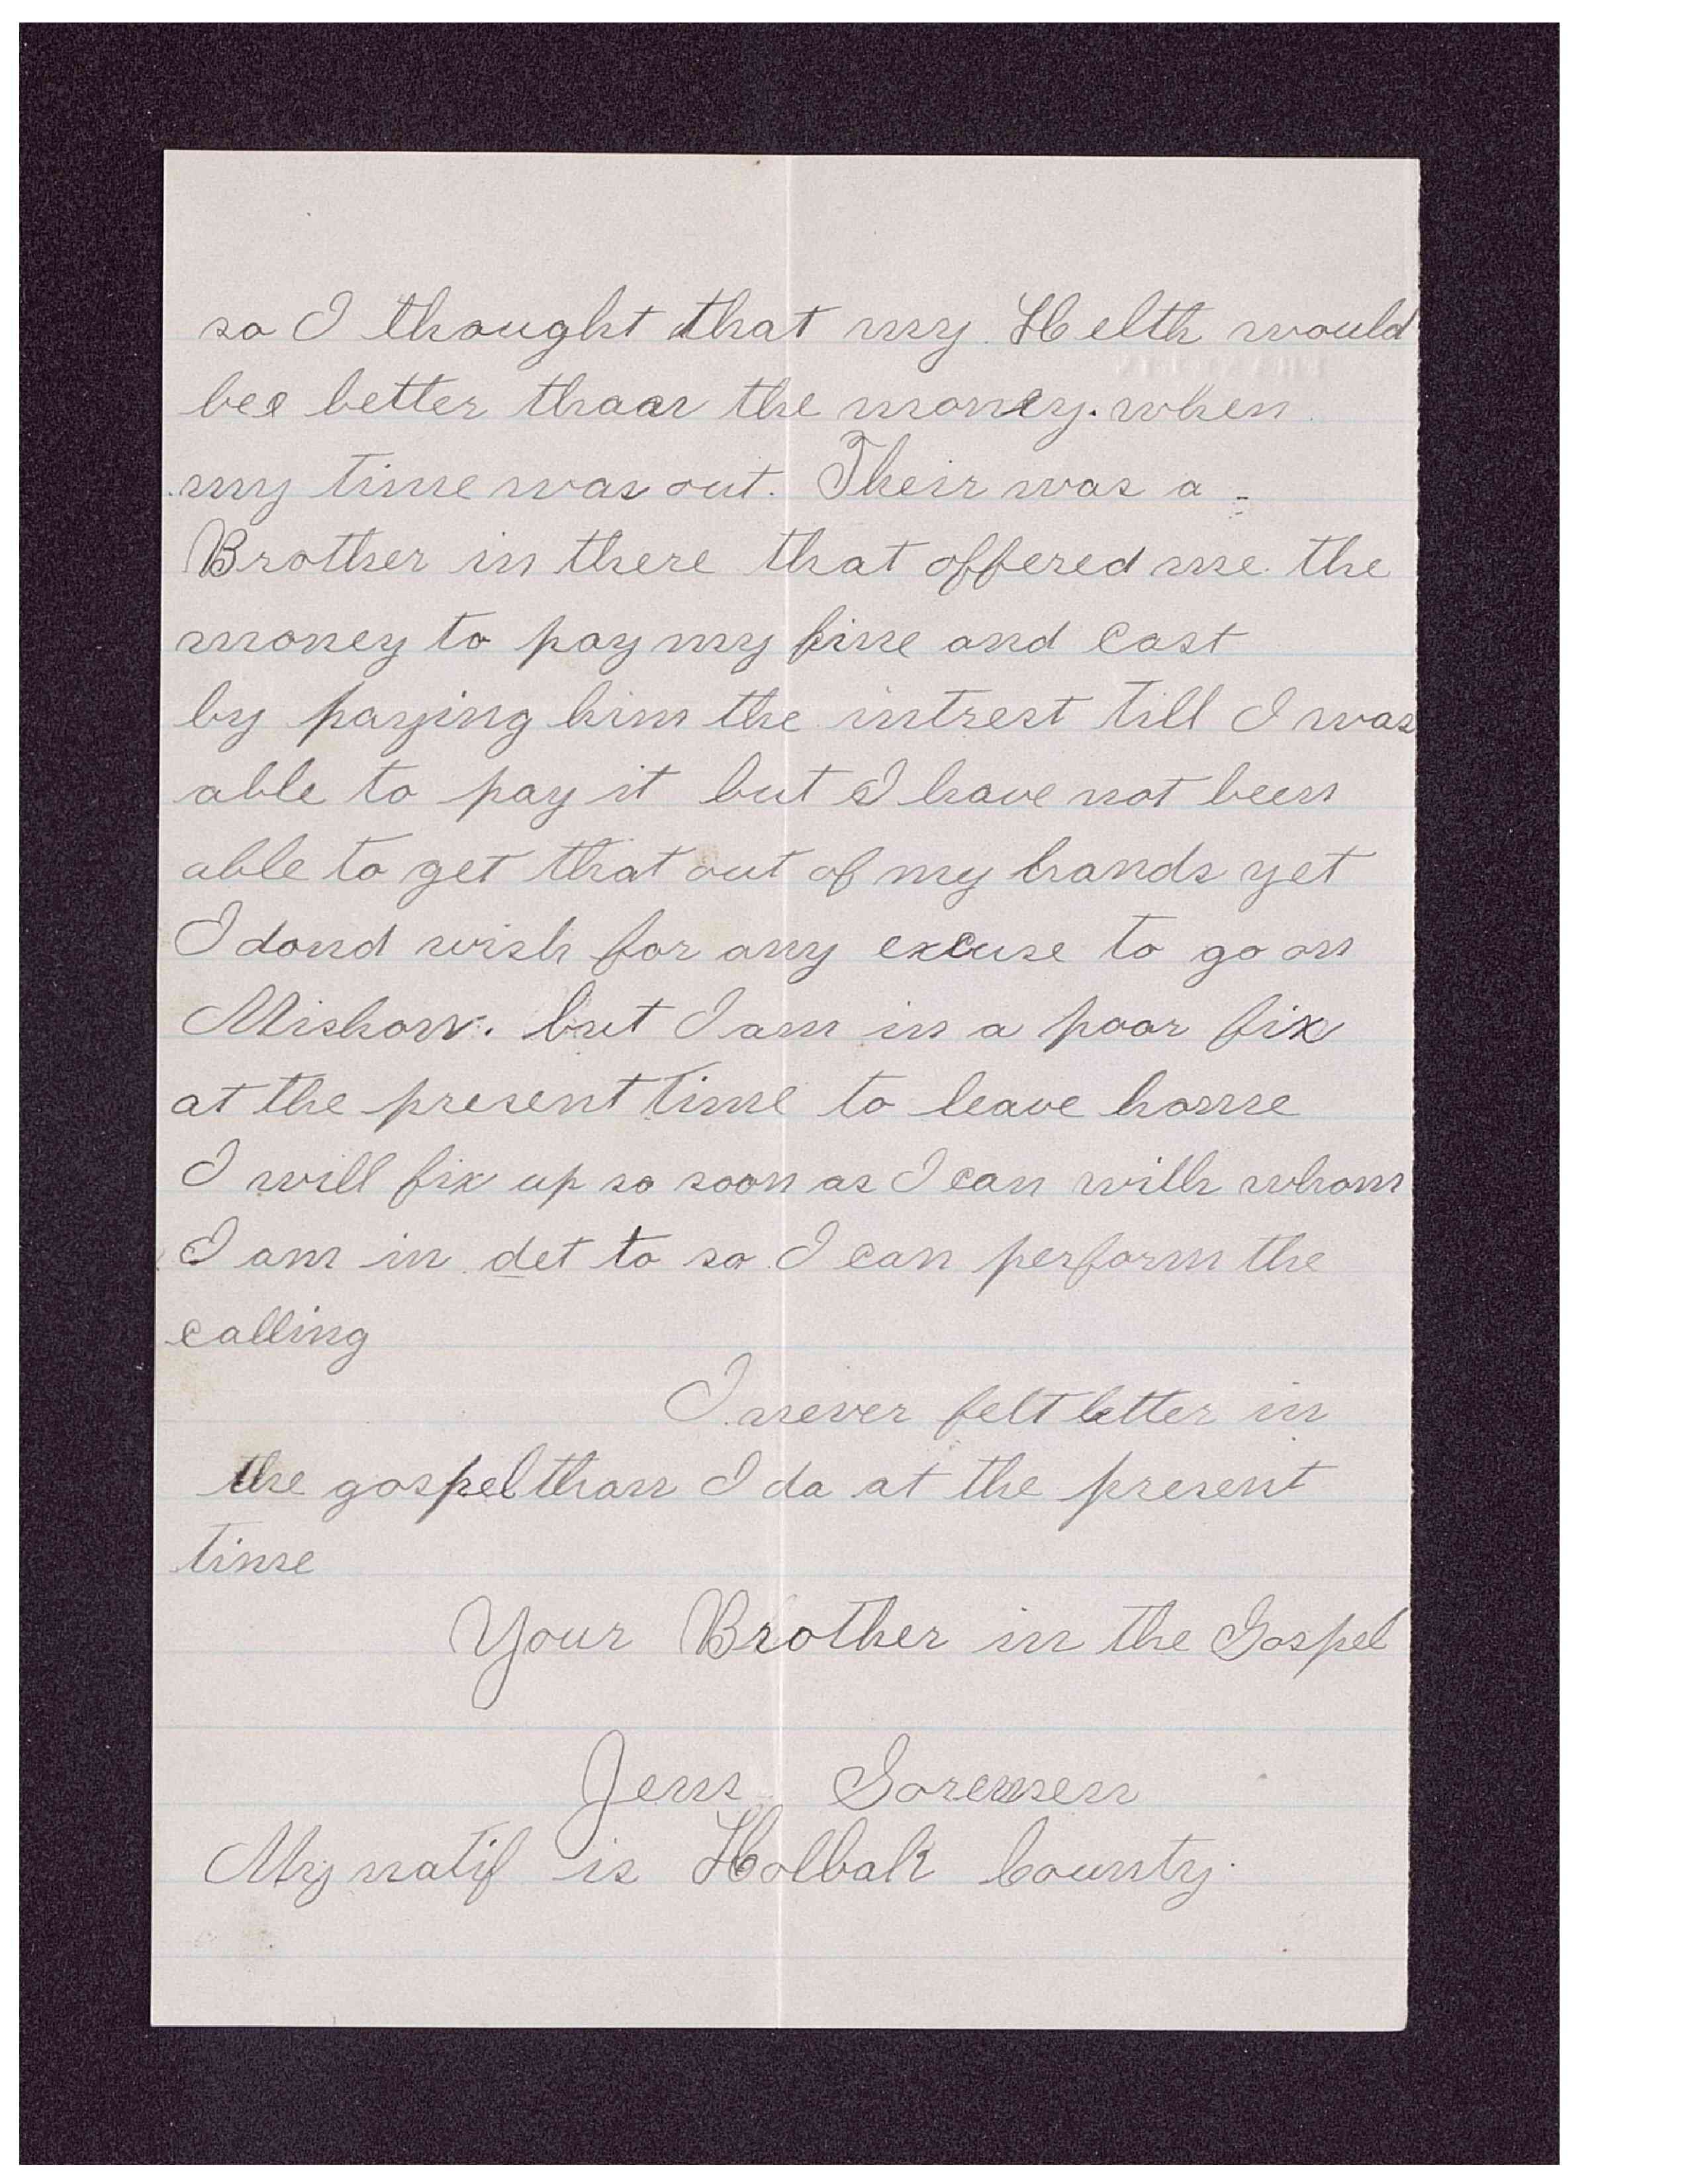 so I thought that my Helth would
bee better thaan the money. when
my time was out. Their was a
Brother in there that offered me the
money to pay my fine and Cost
by paying him the intrest till I was
able to pay it but I have not been
able to get that out of my hands yet
I dond wish for any excuse to go on
Mishon. but I am in a poor fix
at the present time to leave home
I will fix up so soon as I can with whom
I am in det to so I can perform the
calling
I never felt better in
the gospel than I do at the present
time
Your Brother in the Gospel
Jens Sorensen
My natif is Holbak County.